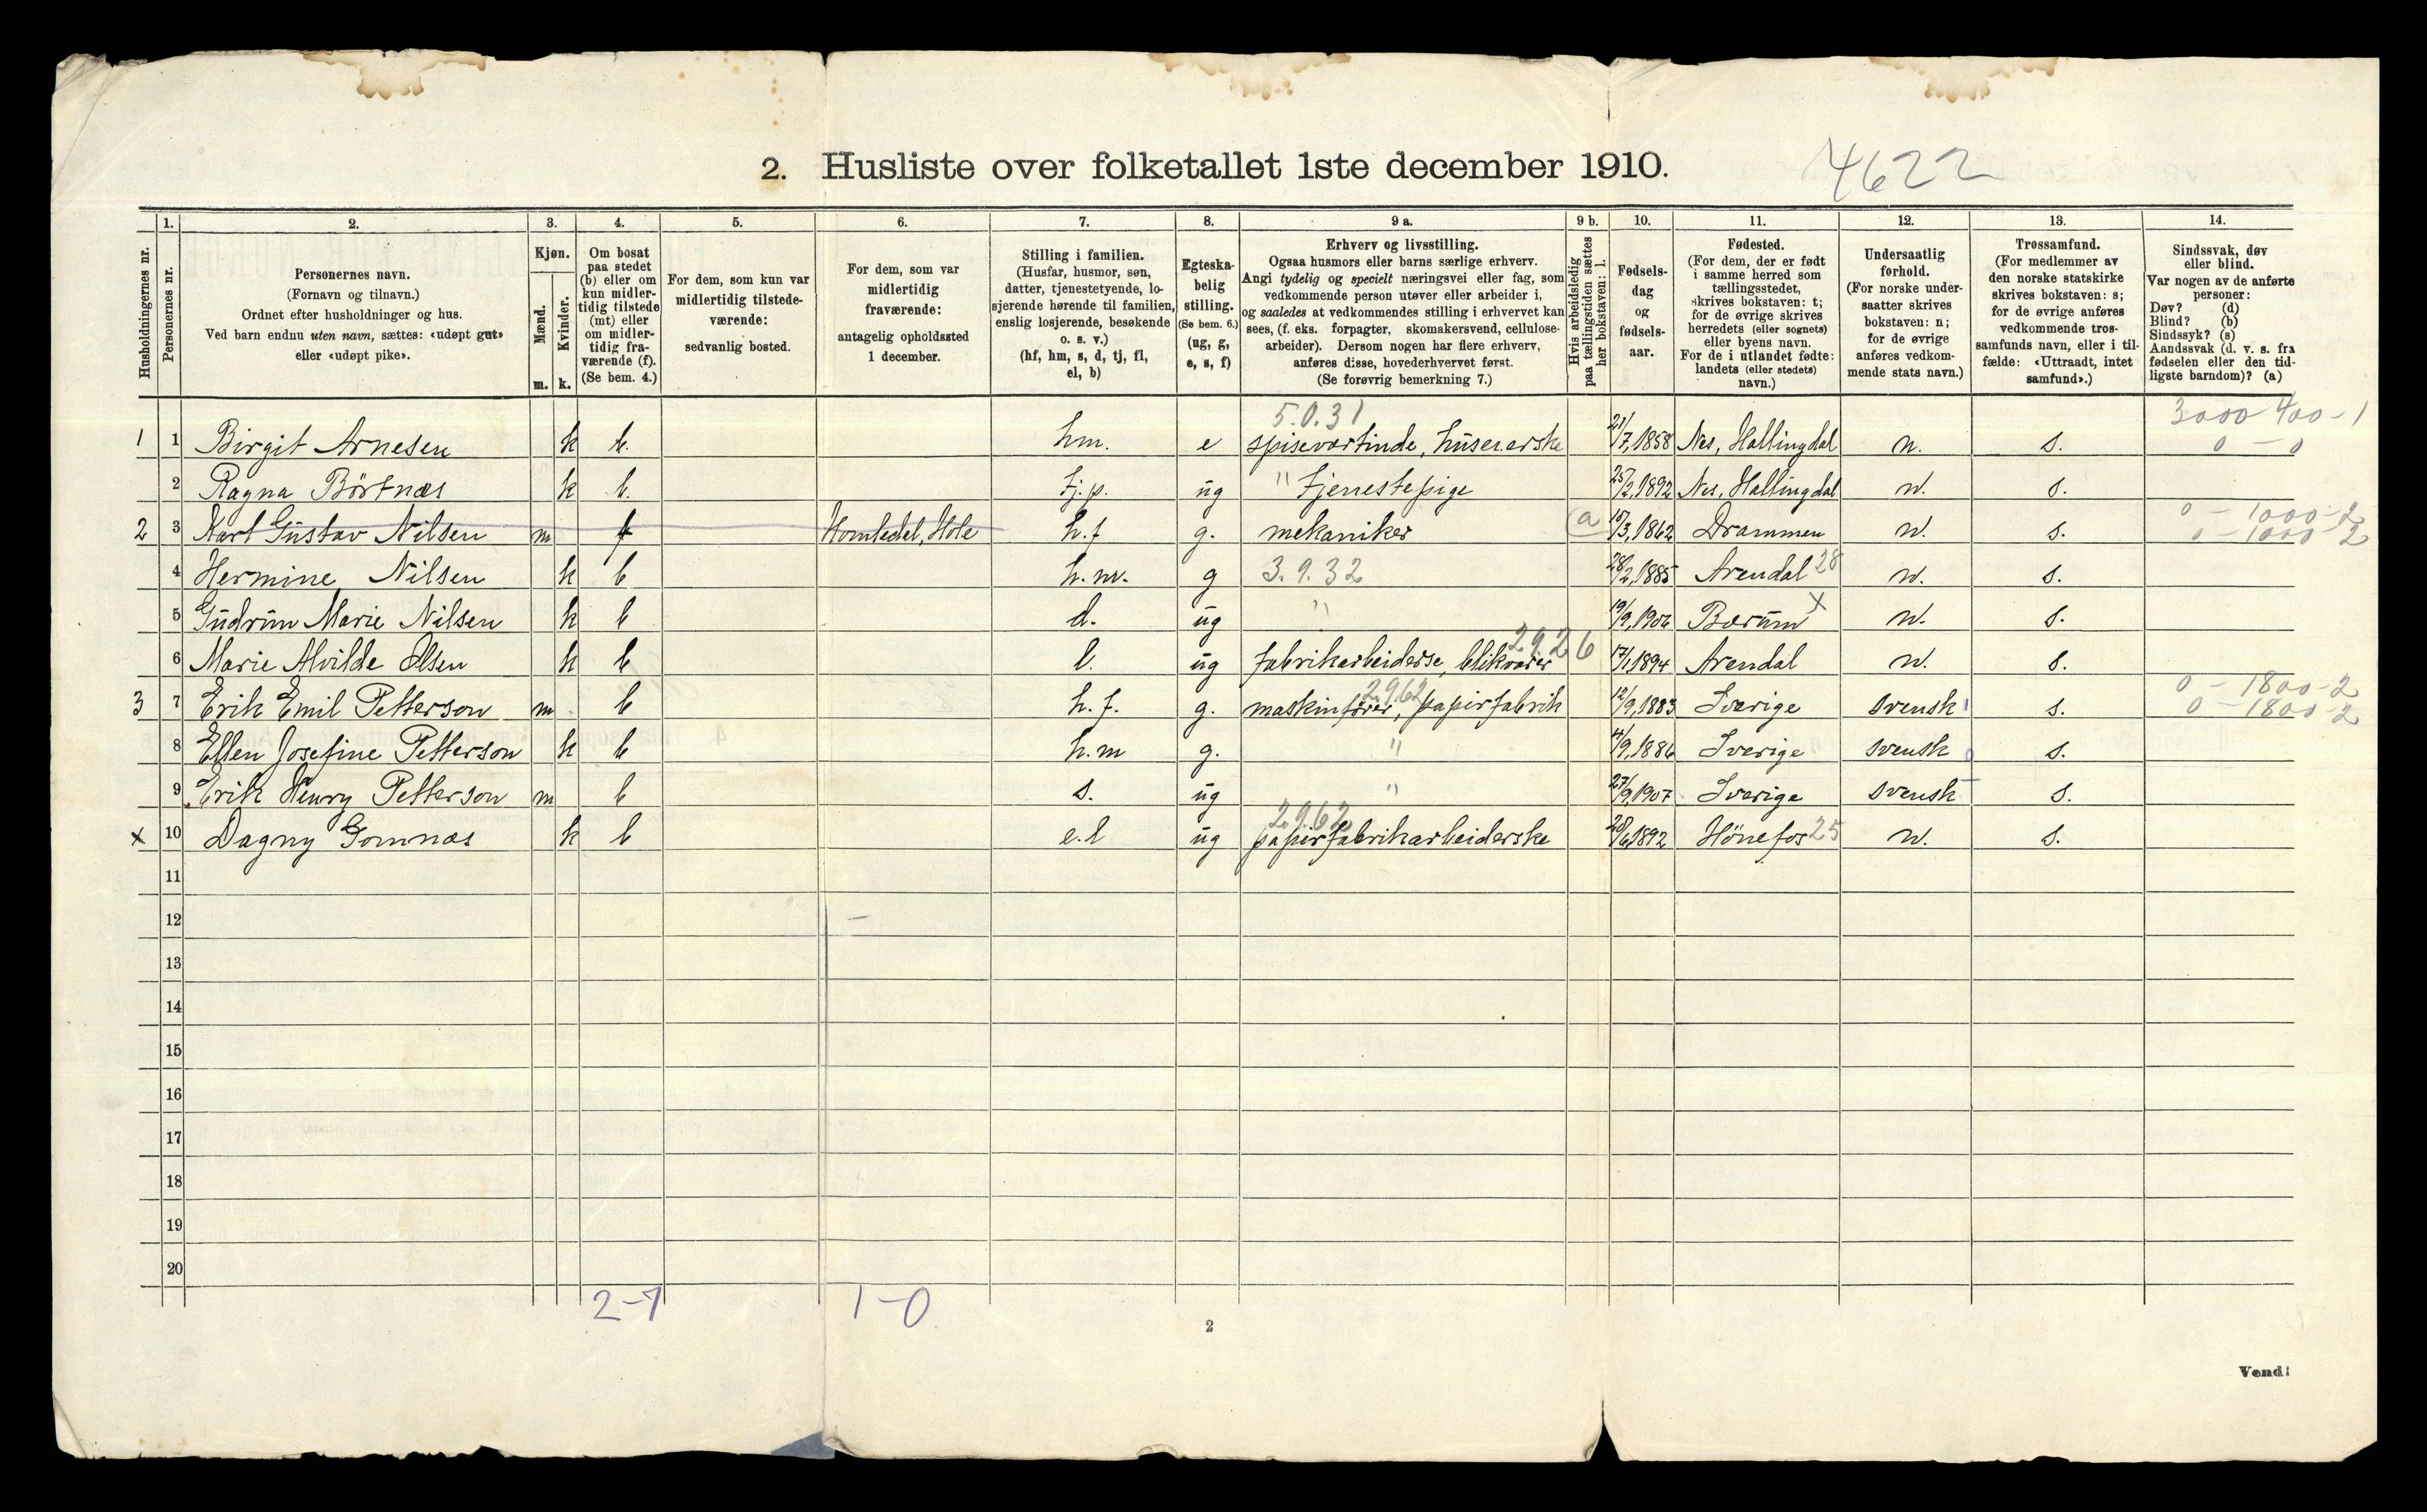 2. Husliste over folketallet 1ste december 1910.
4622
Husholdningernes nr.
1.
Personernes nr.
2.
Personernes navn.
(Fornavn og tilnavn.)
Ordnet efter husholdninger og hus.
Ved barn endnu uten navn, sættes: «udøpt gut»
eller «udøpt pike».
3.
Kjøn.
Mænd.
m.
Kvinder.
k.
4.
Om bosat
paa stedet
(b) eller om
kun midler-
tidig tilstede
(mt) eller
om midler-
tidig fra-
værende (f).
(Se bem. 4.)
5.
For dem, som kun var
midlertidig tilstede-
værende:
sedvanlig bosted.
6.
For dem, som var
midlertidig
fraværende:
antagelig opholdssted
1 december.
7.
Stilling i familien.
(Husfar, husmor, søn,
datter, tjenestetyende, lo-
sjerende hørende til familien,
enslig losjerende, besøkende
o. s. v.)
(hf, hm, s, d, tj, fl,
el, b)
8.
Egteska-
belig
stilling.
(Se bem. 6.)
(ug, g,
e, s, f)
9 a.
Erhverv og livsstilling.
Ogsaa husmors eller barns særlige erhverv.
Angi tydelig og specielt næringsvei eller fag, som
vedkommende person utøver eller arbeider i,
og saaledes at vedkommendes stilling i erhvervet kan
sees, (f. eks. forpagter, skomakersvend, cellulose-
arbeider). Dersom nogen har flere erhverv,
anføres disse, hovederhvervet først.
(Se forøvrig bemerkning 7.)
9 b.
Hvis arbeidsledig
paa tællingstiden sættes
her bokstaven: l.
10.
Fødsels-
dag
og
fødsels-
aar.
11.
Fødested.
(For dem, der er født
i samme herred som
tællingsstedet,
skrives bokstaven: t;
for de øvrige skrives
herredets (eller sognets)
eller byens navn.
For de i utlandet fødte:
landets (eller stedets)
navn.)
12.
Undersaatlig
forhold.
(For norske under-
saatter skrives
bokstaven: n;
for de øvrige
anføres vedkom-
mende stats navn.)
13.
Trossamfund.
(For medlemmer av
den norske statskirke
skrives bokstaven: s;
for de øvrige anføres
vedkommende tros-
samfunds navn, eller i til-
fælde: «Uttraadt, intet
samfund».)
14.
Sindssvak, døv
eller blind.
Var nogen av de anførte
personer:
Døv? (d)
Blind? (b)
Sindssyk? (s)
Aandssvak (d. v. s. fra
fødselen eller den tid-
ligste barndom)? (a)
5.0.31 3000 400-1
1 1 Birgit Arnesen k b. hm. e spisevertinde, 21/7,1858 Nes, Hallingdal n. s. 0 - 0
2 Ragna Börtnæs k b. tj.p. ug " tjenestepige 25/2,1892 Nes, Hallingdal n. s.
0 - 1000-2
2 3 Karl Gustav Nilsen m f Homledal, Hole h.f g. mekaniker (a 15/3,1862 Drammen n. s. 0 - 1000-2
4 Hermine Nilsen k b h.m. g 3.9.32 28/2,1885 Arendal 28 n. s.
5 Gudrun Marie Nilsen k b d. ug " 19/9,1906 Bærum x n. s.
2.9.26
6 Marie Alvilde Olsen k b l. ug fabrikarbeiderse, blikvarer 17/1,1894 Arendal n. s.
2.9.62 0 - 1800-2
3 7 Erik Emil Petterson m b h.f. g. maskinfører, papirfabrik 12/9,1883 Sverige svensk s. 0 - 1800-2
8 Ellen Josefine Petterson k b h.m g. " 4/9,1886 Sverige svensk s.
9 Erik Henry Petterson m b s. ug " 27/9,1907 Sverige svensk s.
2.9.62
x 10 Dagny Gomnæs k b e.l ug papirfabrikarbeiderske 28/6,1892 Hönefos 25 n. s.
11
12
13
14
15
16
17
18
19
20
2-7 1-0
2
Vend!